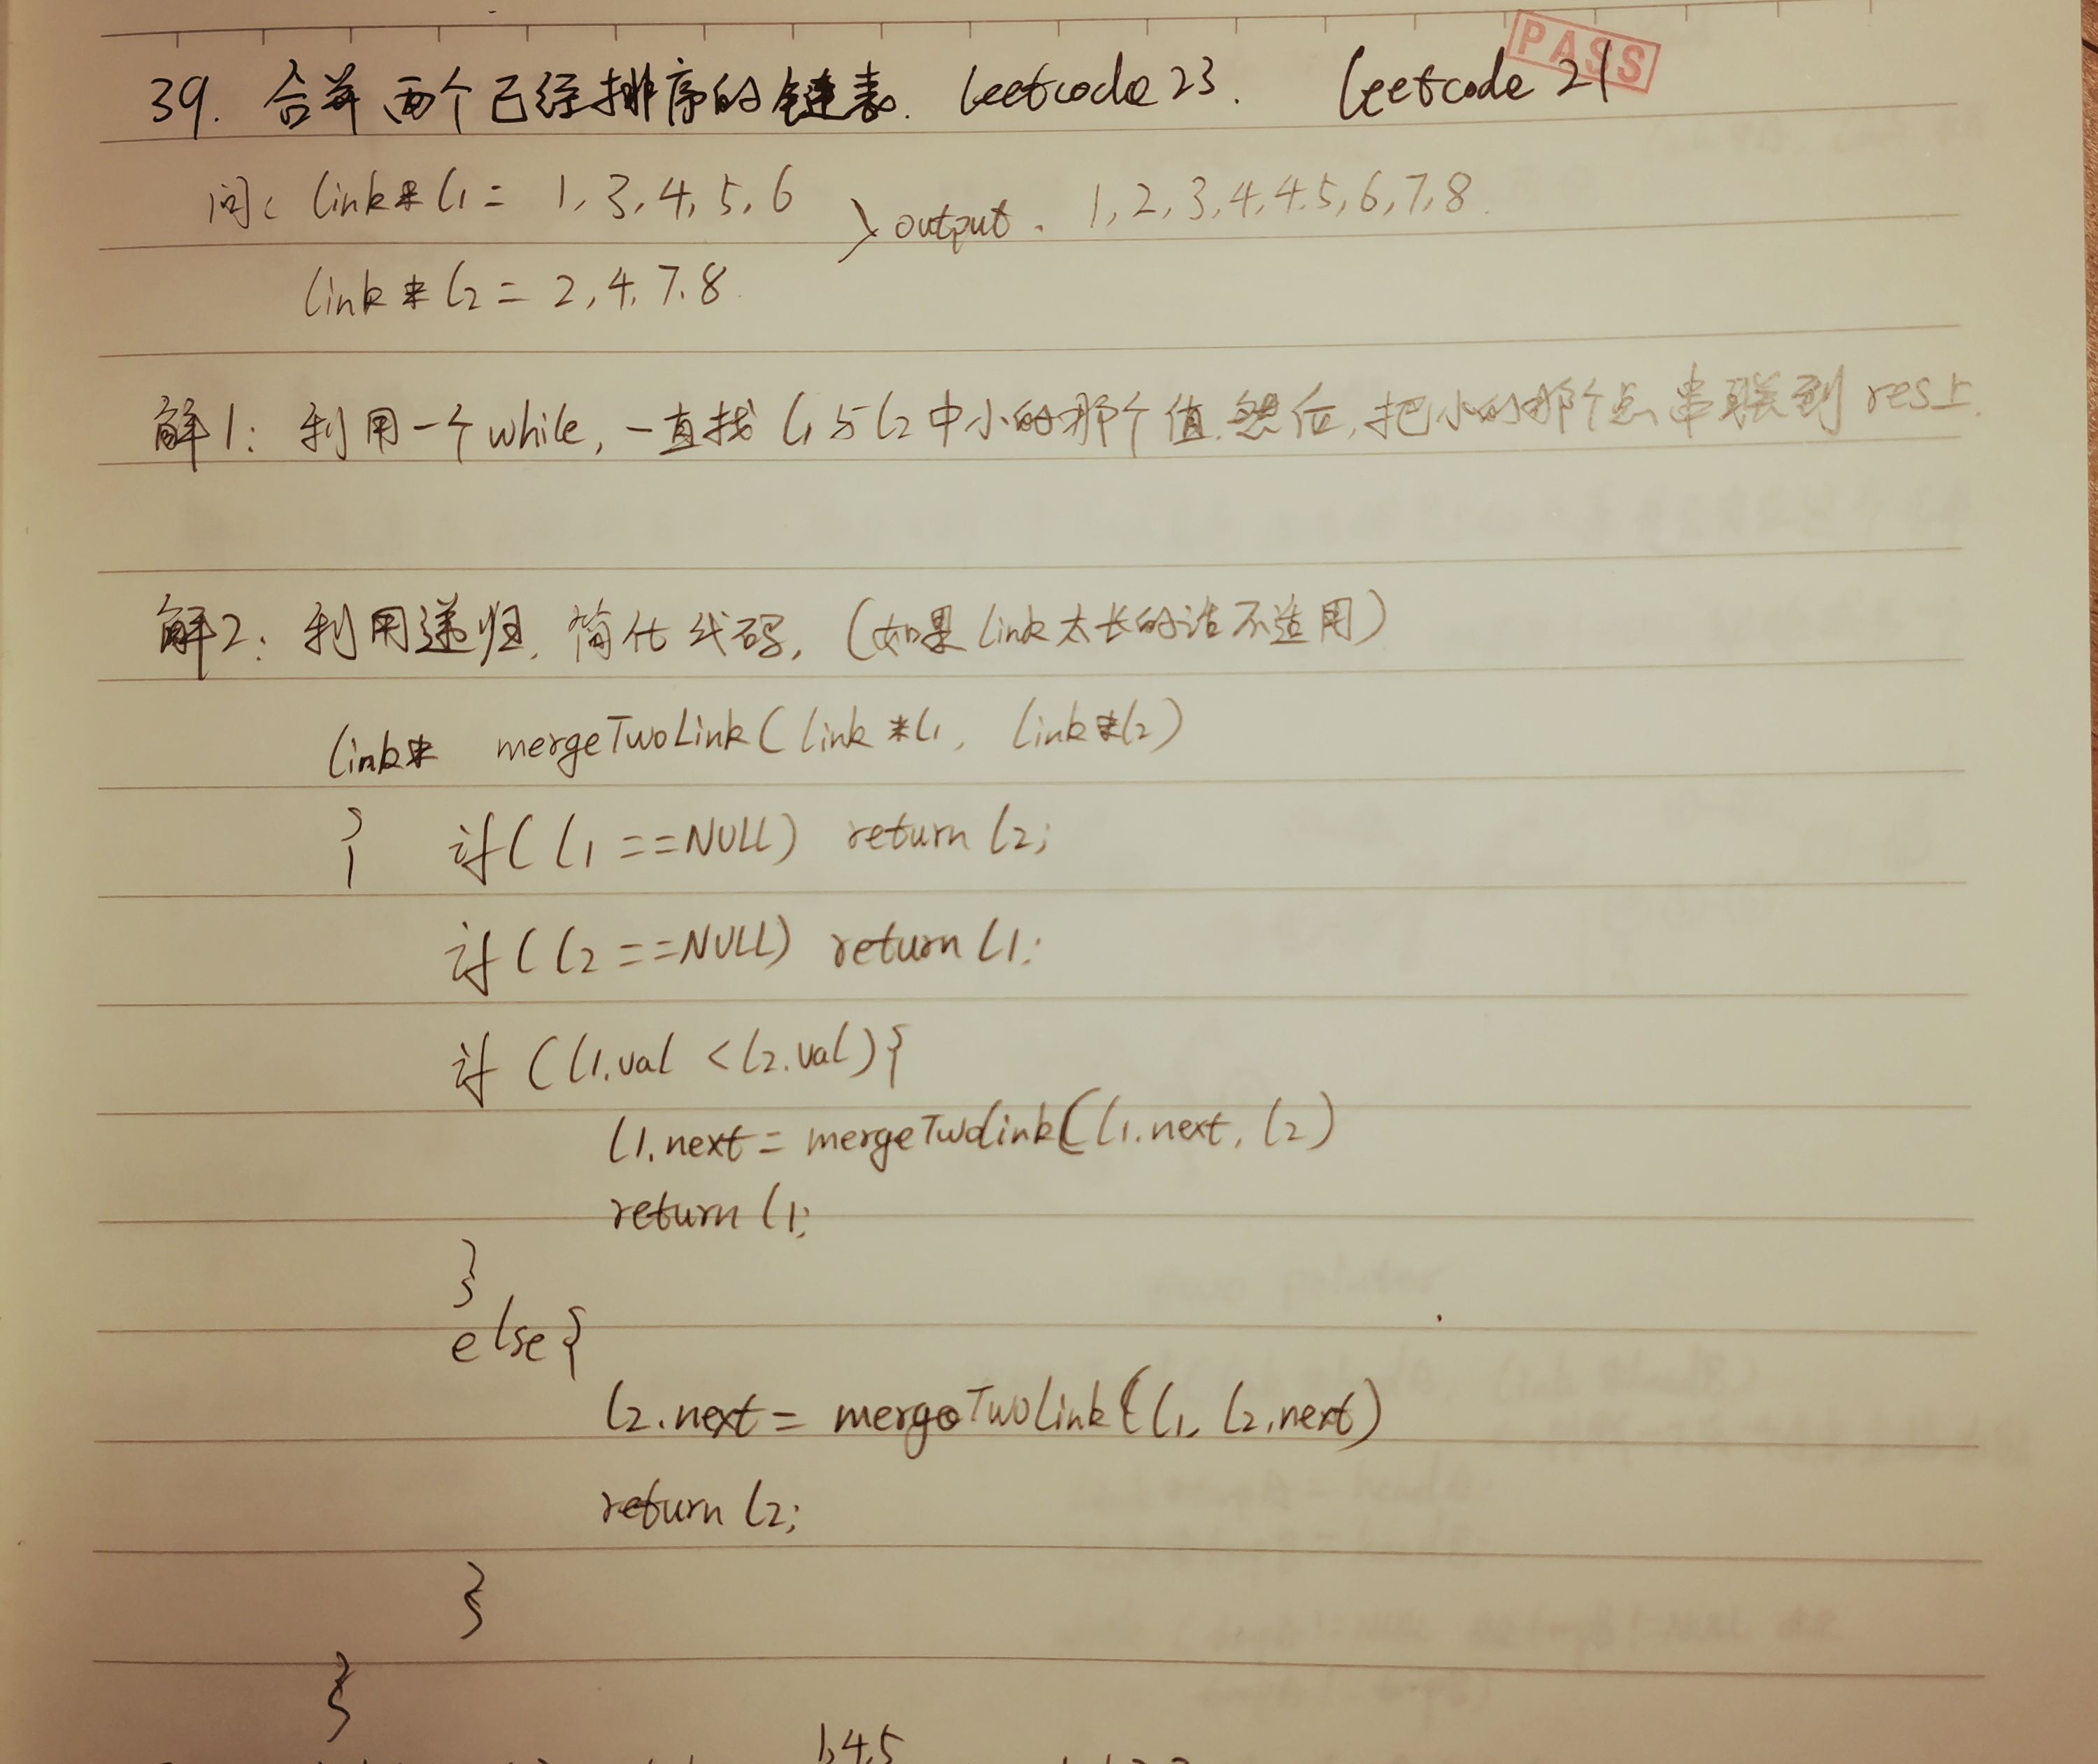 39. 合并两个已经排序的链表. leetcode 23. leetcode 21
PASS
问: link* l1 = 1, 3, 4, 5, 6 } output. 1, 2, 3, 4, 4, 5, 6, 7, 8.
link* l2 = 2, 4, 7, 8
解1: 利用一个while, 一直找 l1 与 l2 中小的那个值. 然后, 把小的那个点串联到 res上.
解2: 利用递归, 简化代码, (如果link太长的话不适用)
link* mergeTwoLink( link *l1, link *l2 )
{ if( l1 ==NULL) return l2;
if( l2 ==NULL) return l1;
if (l1.val < l2.val){
l1.next = mergeTwoLink(l1.next, l2)
return l1;
}
else{
l2.next = mergeTwoLink(l1, l2.next)
return l2;
}
}
1,4,5